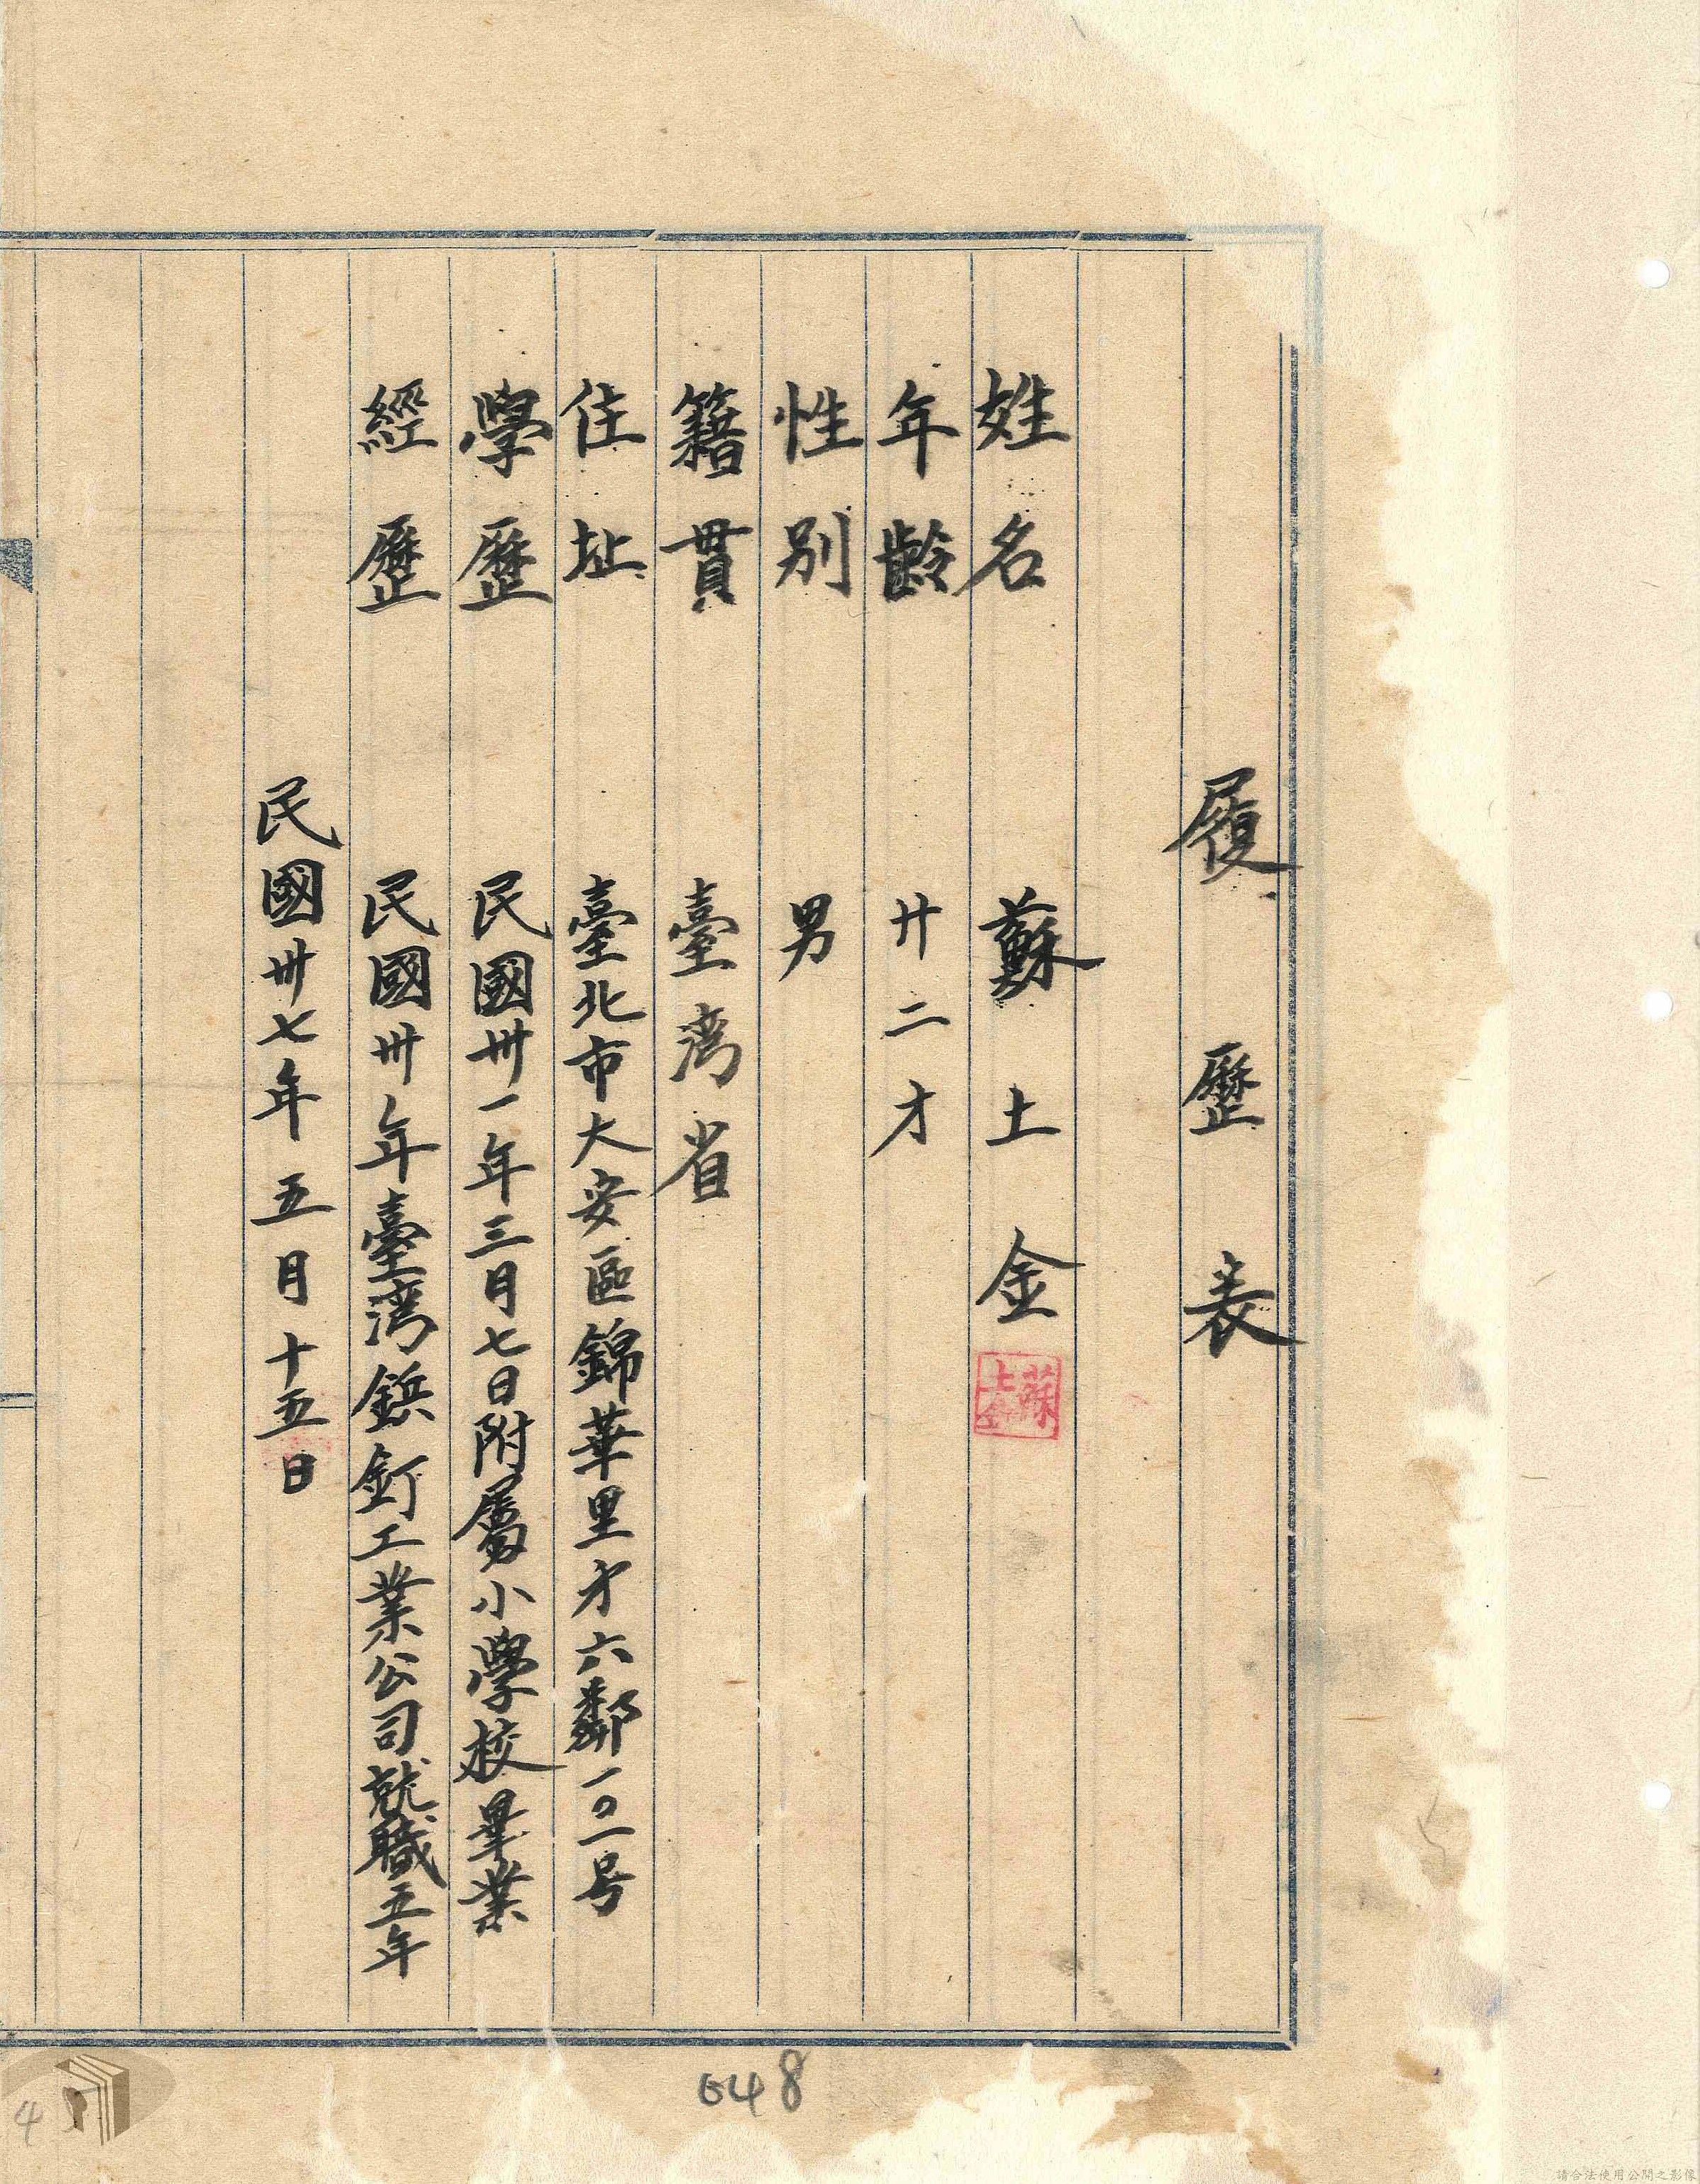 履歷表
姓名 蘇土金
蘇土金
年齡 廿二才
性別 男
籍貫 臺湾省
住址 臺北市大安區錦華里才六鄰一〇一号
學歷 民國卅一年三月七日附属小學校畢業
經歷 民國卅年臺湾鋲釘工業公司就職五年
民國卅七年五月十五日
648
4
請合法使用公開之影像